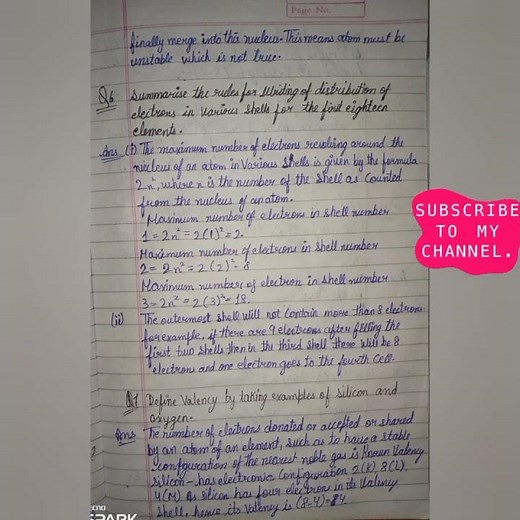 Page No.
finally merge into this nucleus. This means atom must be
unstable which is not true.
Q6 Summarise the rules for writing of distribution of
electrons in various shells for the first eighteen
elements.
Ans (i) The maximum number of electrons revolving around the
nucleus of an atom in various shells is given by the formula
2n², where n is the number of the shell as counted
from the nucleus of an atom.
Maximum number of electrons in shell number
1 = 2n² = 2(1)² = 2.
Maximum number of electrons in shell number
2 = 2n² = 2(2)² = 8
Maximum number of electron in shell number
3 = 2n² = 2(3)² = 18.
(ii) The outermost shell will not contain more than 8 electrons
for example, if there are 9 electrons after filling the
first two shells then in the third shell there will be 8
electrons and one electron goes to the fourth cell.
Q7 Define Valency by taking examples of silicon and
oxygen.
Ans The number of electrons donated or accepted or shared
by an atom of an element, such as to have a stable
configuration of the nearest noble gas is known valency
silicon - has electronic configuration 2(K), 8(L),
4(M). As silicon has four electrons in its valency
shell, hence its valency is (8-4)=84.
SUBSCRIBE
TO MY
CHANNEL.
SPARK